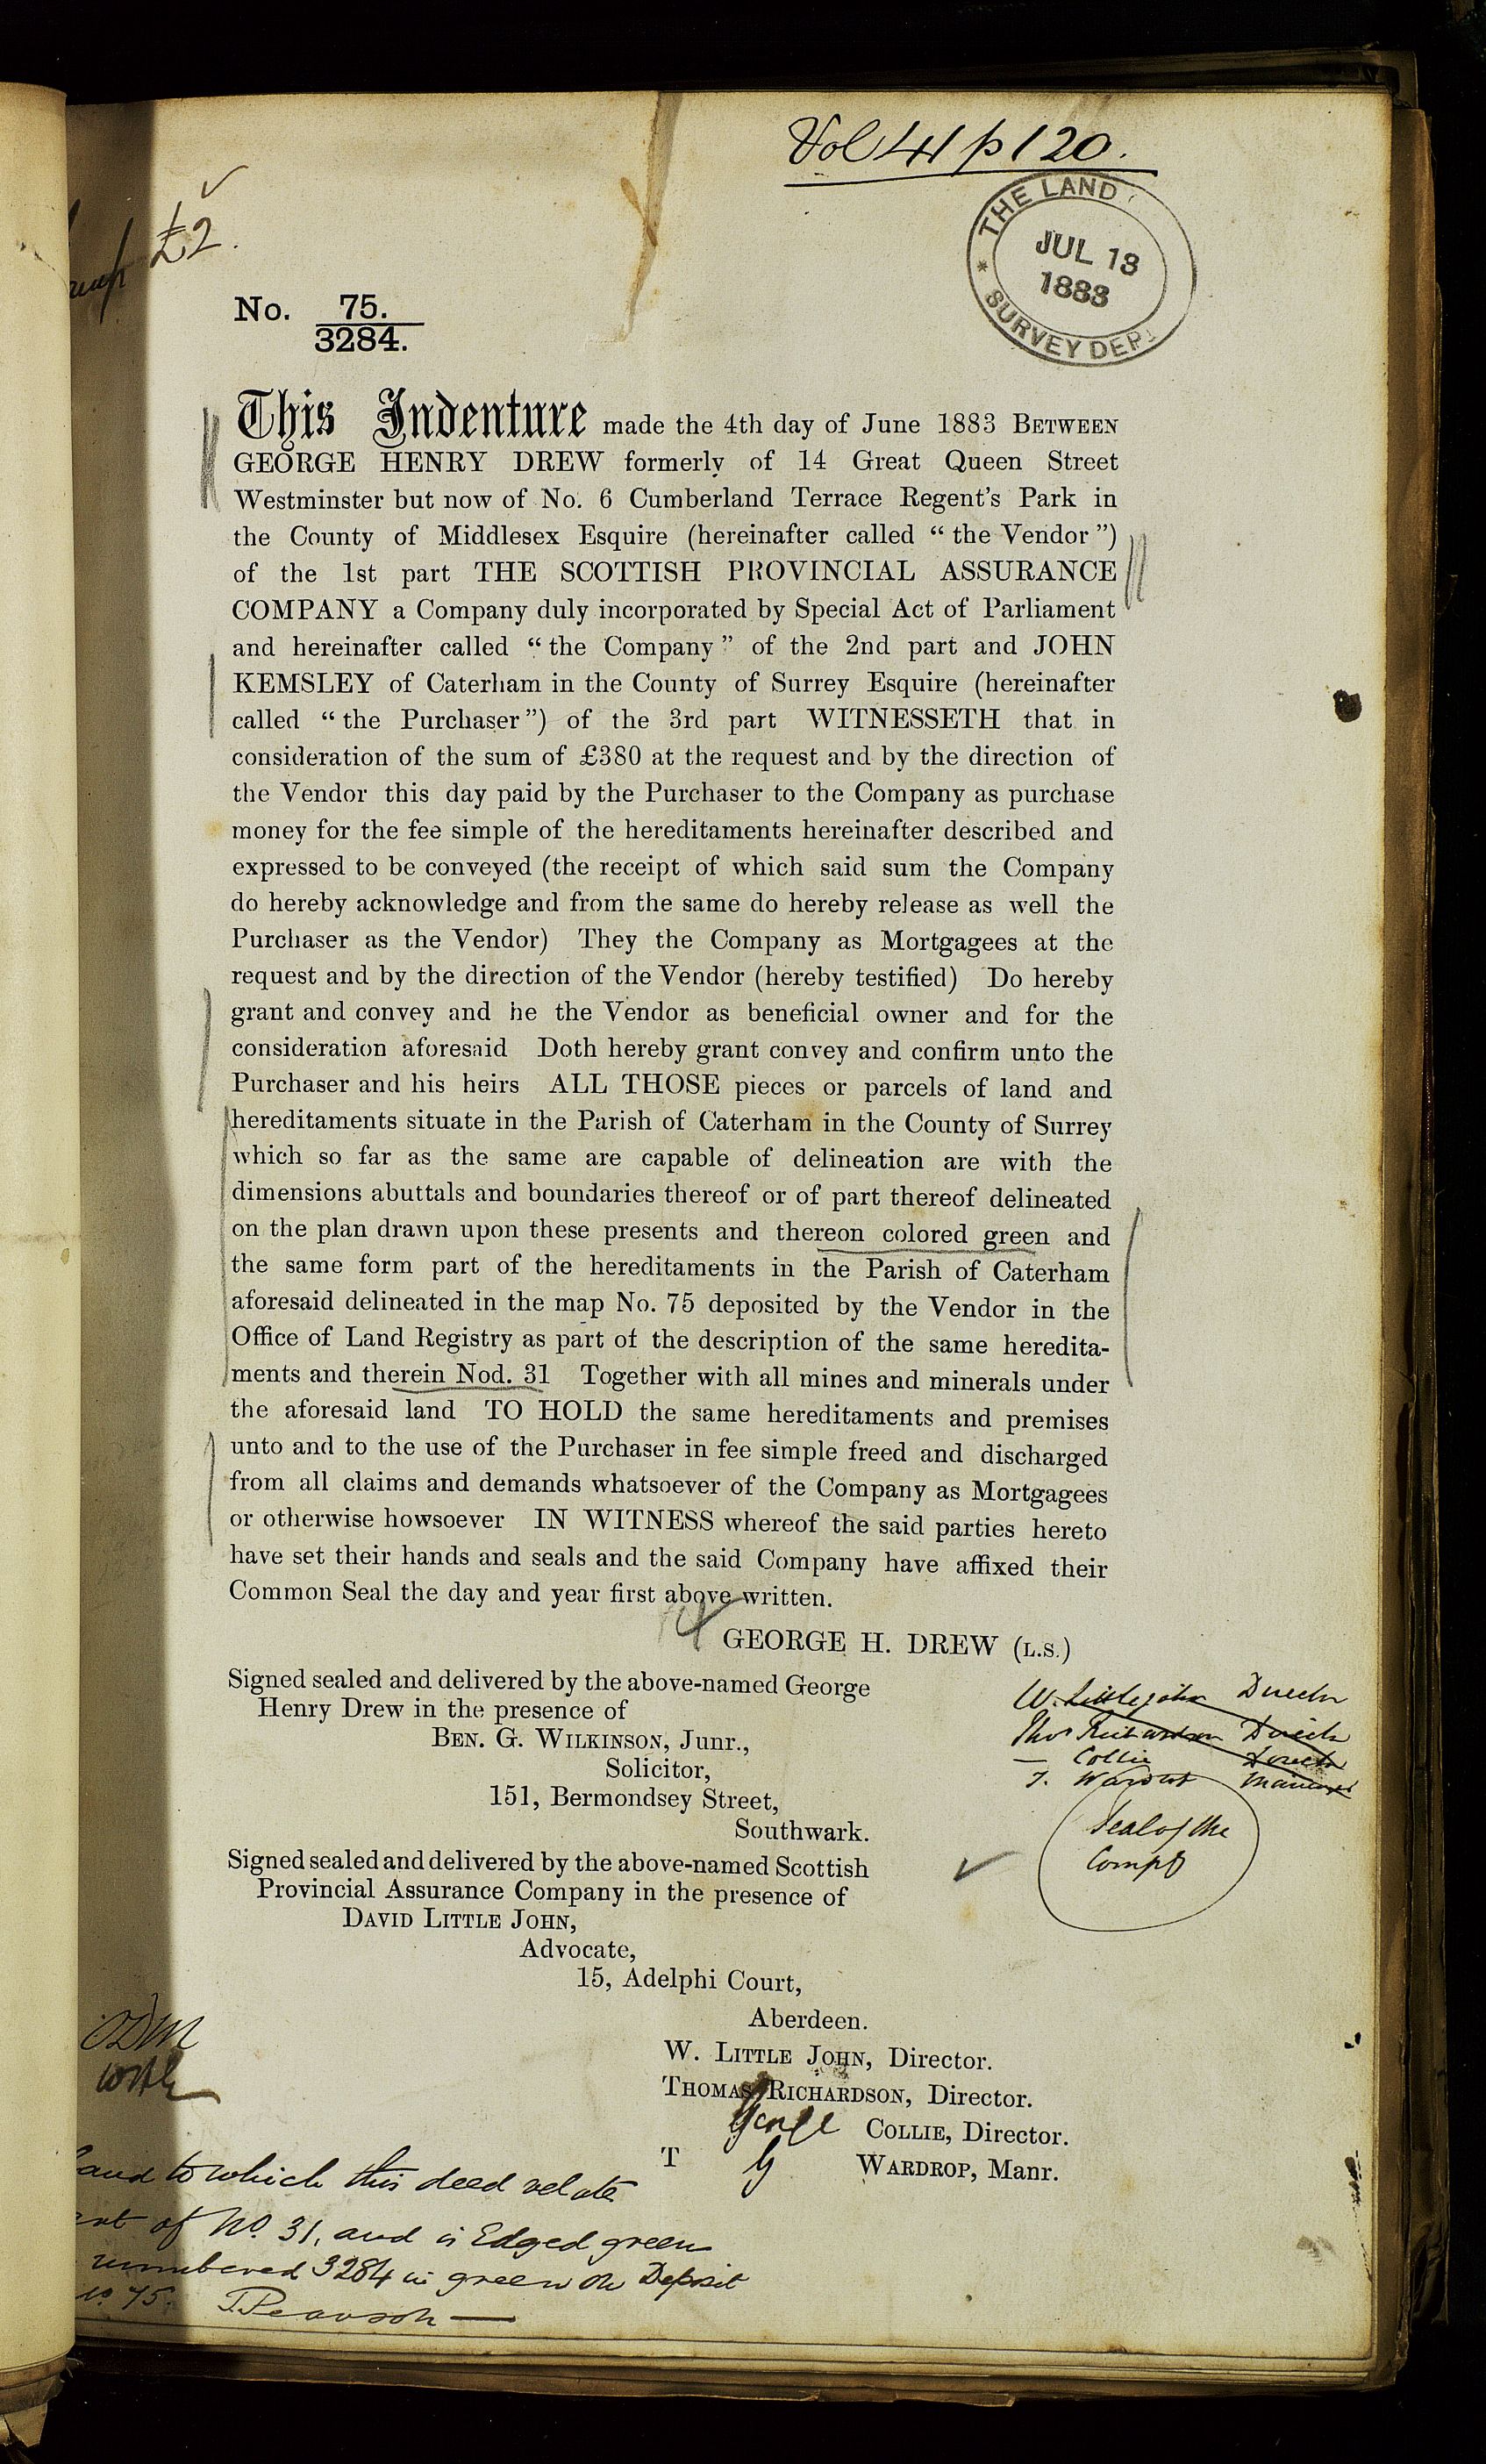 Vol 41 p 120.
£2.
THE LAND
JUL 13
1883
SURVEY DEPT
No. 75.
3284.
This Indenture made the 4th day of June 1883 BETWEEN
GEORGE HENRY DREW formerly of 14 Great Queen Street
Westminster but now of No. 6 Cumberland Terrace Regent's Park in
the County of Middlesex Esquire (hereinafter called "the Vendor")
of the 1st part THE SCOTTISH PROVINCIAL ASSURANCE
COMPANY a Company duly incorporated by Special Act of Parliament
and hereinafter called "the Company" of the 2nd part and JOHN
KEMSLEY of Caterham in the County of Surrey Esquire (hereinafter
called "the Purchaser") of the 3rd part WITNESSETH that in
consideration of the sum of £380 at the request and by the direction of
the Vendor this day paid by the Purchaser to the Company as purchase
money for the fee simple of the hereditaments hereinafter described and
expressed to be conveyed (the receipt of which said sum the Company
do hereby acknowledge and from the same do hereby release as well the
Purchaser as the Vendor) They the Company as Mortgagees at the
request and by the direction of the Vendor (hereby testified) Do hereby
grant and convey and he the Vendor as beneficial owner and for the
consideration aforesaid Doth hereby grant convey and confirm unto the
Purchaser and his heirs ALL THOSE pieces or parcels of land and
hereditaments situate in the Parish of Caterham in the County of Surrey
which so far as the same are capable of delineation are with the
dimensions abuttals and boundaries thereof or of part thereof delineated
on the plan drawn upon these presents and thereon colored green and
the same form part of the hereditaments in the Parish of Caterham
aforesaid delineated in the map No. 75 deposited by the Vendor in the
Office of Land Registry as part of the description of the same heredita-
ments and therein Nod. 31 Together with all mines and minerals under
the aforesaid land TO HOLD the same hereditaments and premises
unto and to the use of the Purchaser in fee simple freed and discharged
from all claims and demands whatsoever of the Company as Mortgagees
or otherwise howsoever IN WITNESS whereof the said parties hereto
have set their hands and seals and the said Company have affixed their
Common Seal the day and year first above written.
GEORGE H. DREW (L.S.)
Signed sealed and delivered by the above-named George
Henry Drew in the presence of
BEN. G. WILKINSON, Junr.,
Solicitor,
151, Bermondsey Street,
Southwark.
W. Littlejohn Director
Thos Richardson Director
— Collie Director
T. Wardrop Manager
Seal of the
Compy
Signed sealed and delivered by the above-named Scottish
Provincial Assurance Company in the presence of
DAVID LITTLE JOHN,
Advocate,
15, Adelphi Court,
Aberdeen.
W. LITTLE JOHN, Director.
THOMAS RICHARDSON, Director.
George COLLIE, Director.
T G WARDROP, Manr.
land to which this deed relates
of No. 31, and is Edged green
numbered 3284 in green on Deposit
No 75. J. Pearson —